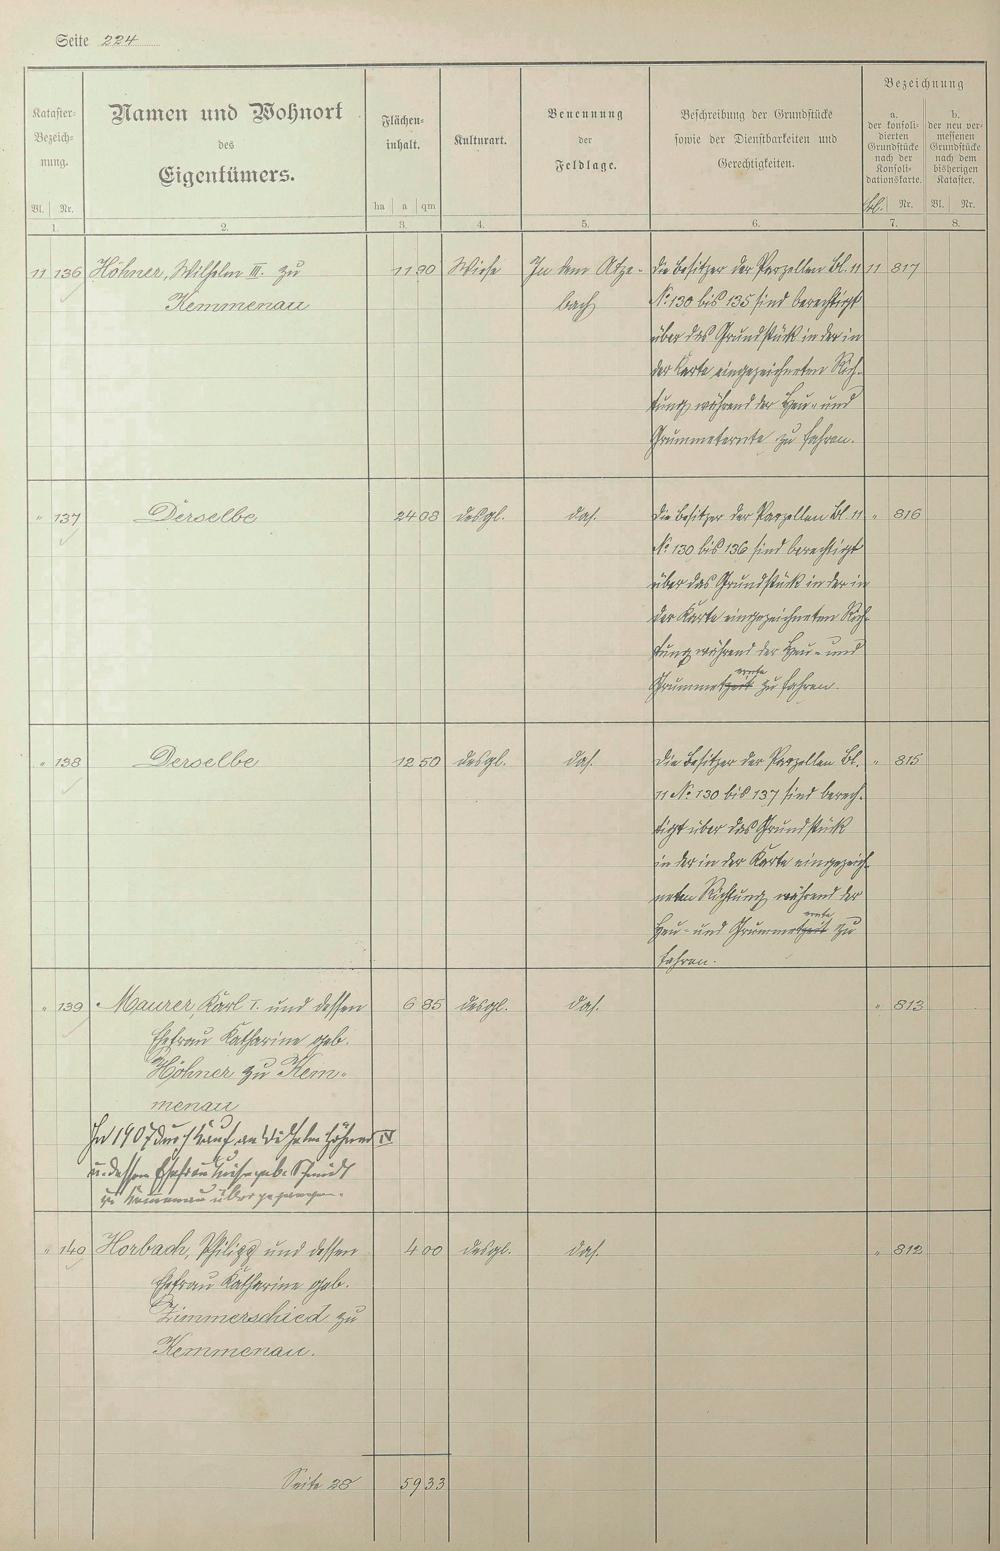 Seite 224
Kataster-
Bezeich-
nung.
Bl. Nr.
1.
Namen und Wohnort
des
Eigentümers.
2.
Flächen-
inhalt.
ha a qm
3.
Kulturart.
4.
Benennung
der
Feldlage.
5.
Beschreibung der Grundstücke
sowie der Dienstbarkeiten und
Gerechtigkeiten.
6.
Bezeichnung
a.
der konsoli-
dierten
Grundstücke
nach der
Konsoli-
dationskarte.
Bl. Nr.
7.
b.
der neu ver-
messenen
Grundstücke
nach dem
bisherigen
Kataster.
Bl. Nr.
8.
11 136 Höhner, Wilhelm III. zu
Kemmenau
11 90 Wiese In dem Atze-
bach
Die Besitzer der Parzellen Bl. 11
No. 130 bis 135 sind berechtigt
über das Grundstück in der in
der Karte eingezeichneten Rich-
tung während der Heu- und
Grummeternte zu fahren.
11 817
" 137 Derselbe 24 08 desgl. das.
Die Besitzer der Parzellen Bl. 11
No. 130 bis 136 sind berechtigt
über das Grundstück in der in
der Karte eingezeichneten Rich-
tung während der Heu- und
ernte
Grummetzeit zu fahren.
" 816
" 138 Derselbe 12 50 desgl. das.
Die Besitzer der Parzellen Bl.
11 No. 130 bis 137 sind berech-
tigt über das Grundstück
in der in der Karte eingezeich-
neten Richtung während der
ernte
Heu- und Grummetzeit zu
fahren.
" 815
" 139 Maurer, Karl I. und dessen
Ehefrau Katharine geb.
Höhner zu Kem-
menau
6 85 desgl. das. " 813
In 1907 durch Kauf an Wilhelm Höhner IV
u. dessen Ehefrau Luise geb. Schmidt
zu Kemmenau übergegangen.
" 140 Horbach, Philipp und dessen
Ehefrau Katharine geb.
Zimmerschied zu
Kemmenau.
4 00 desgl. das. " 812
Seite 28 59 33